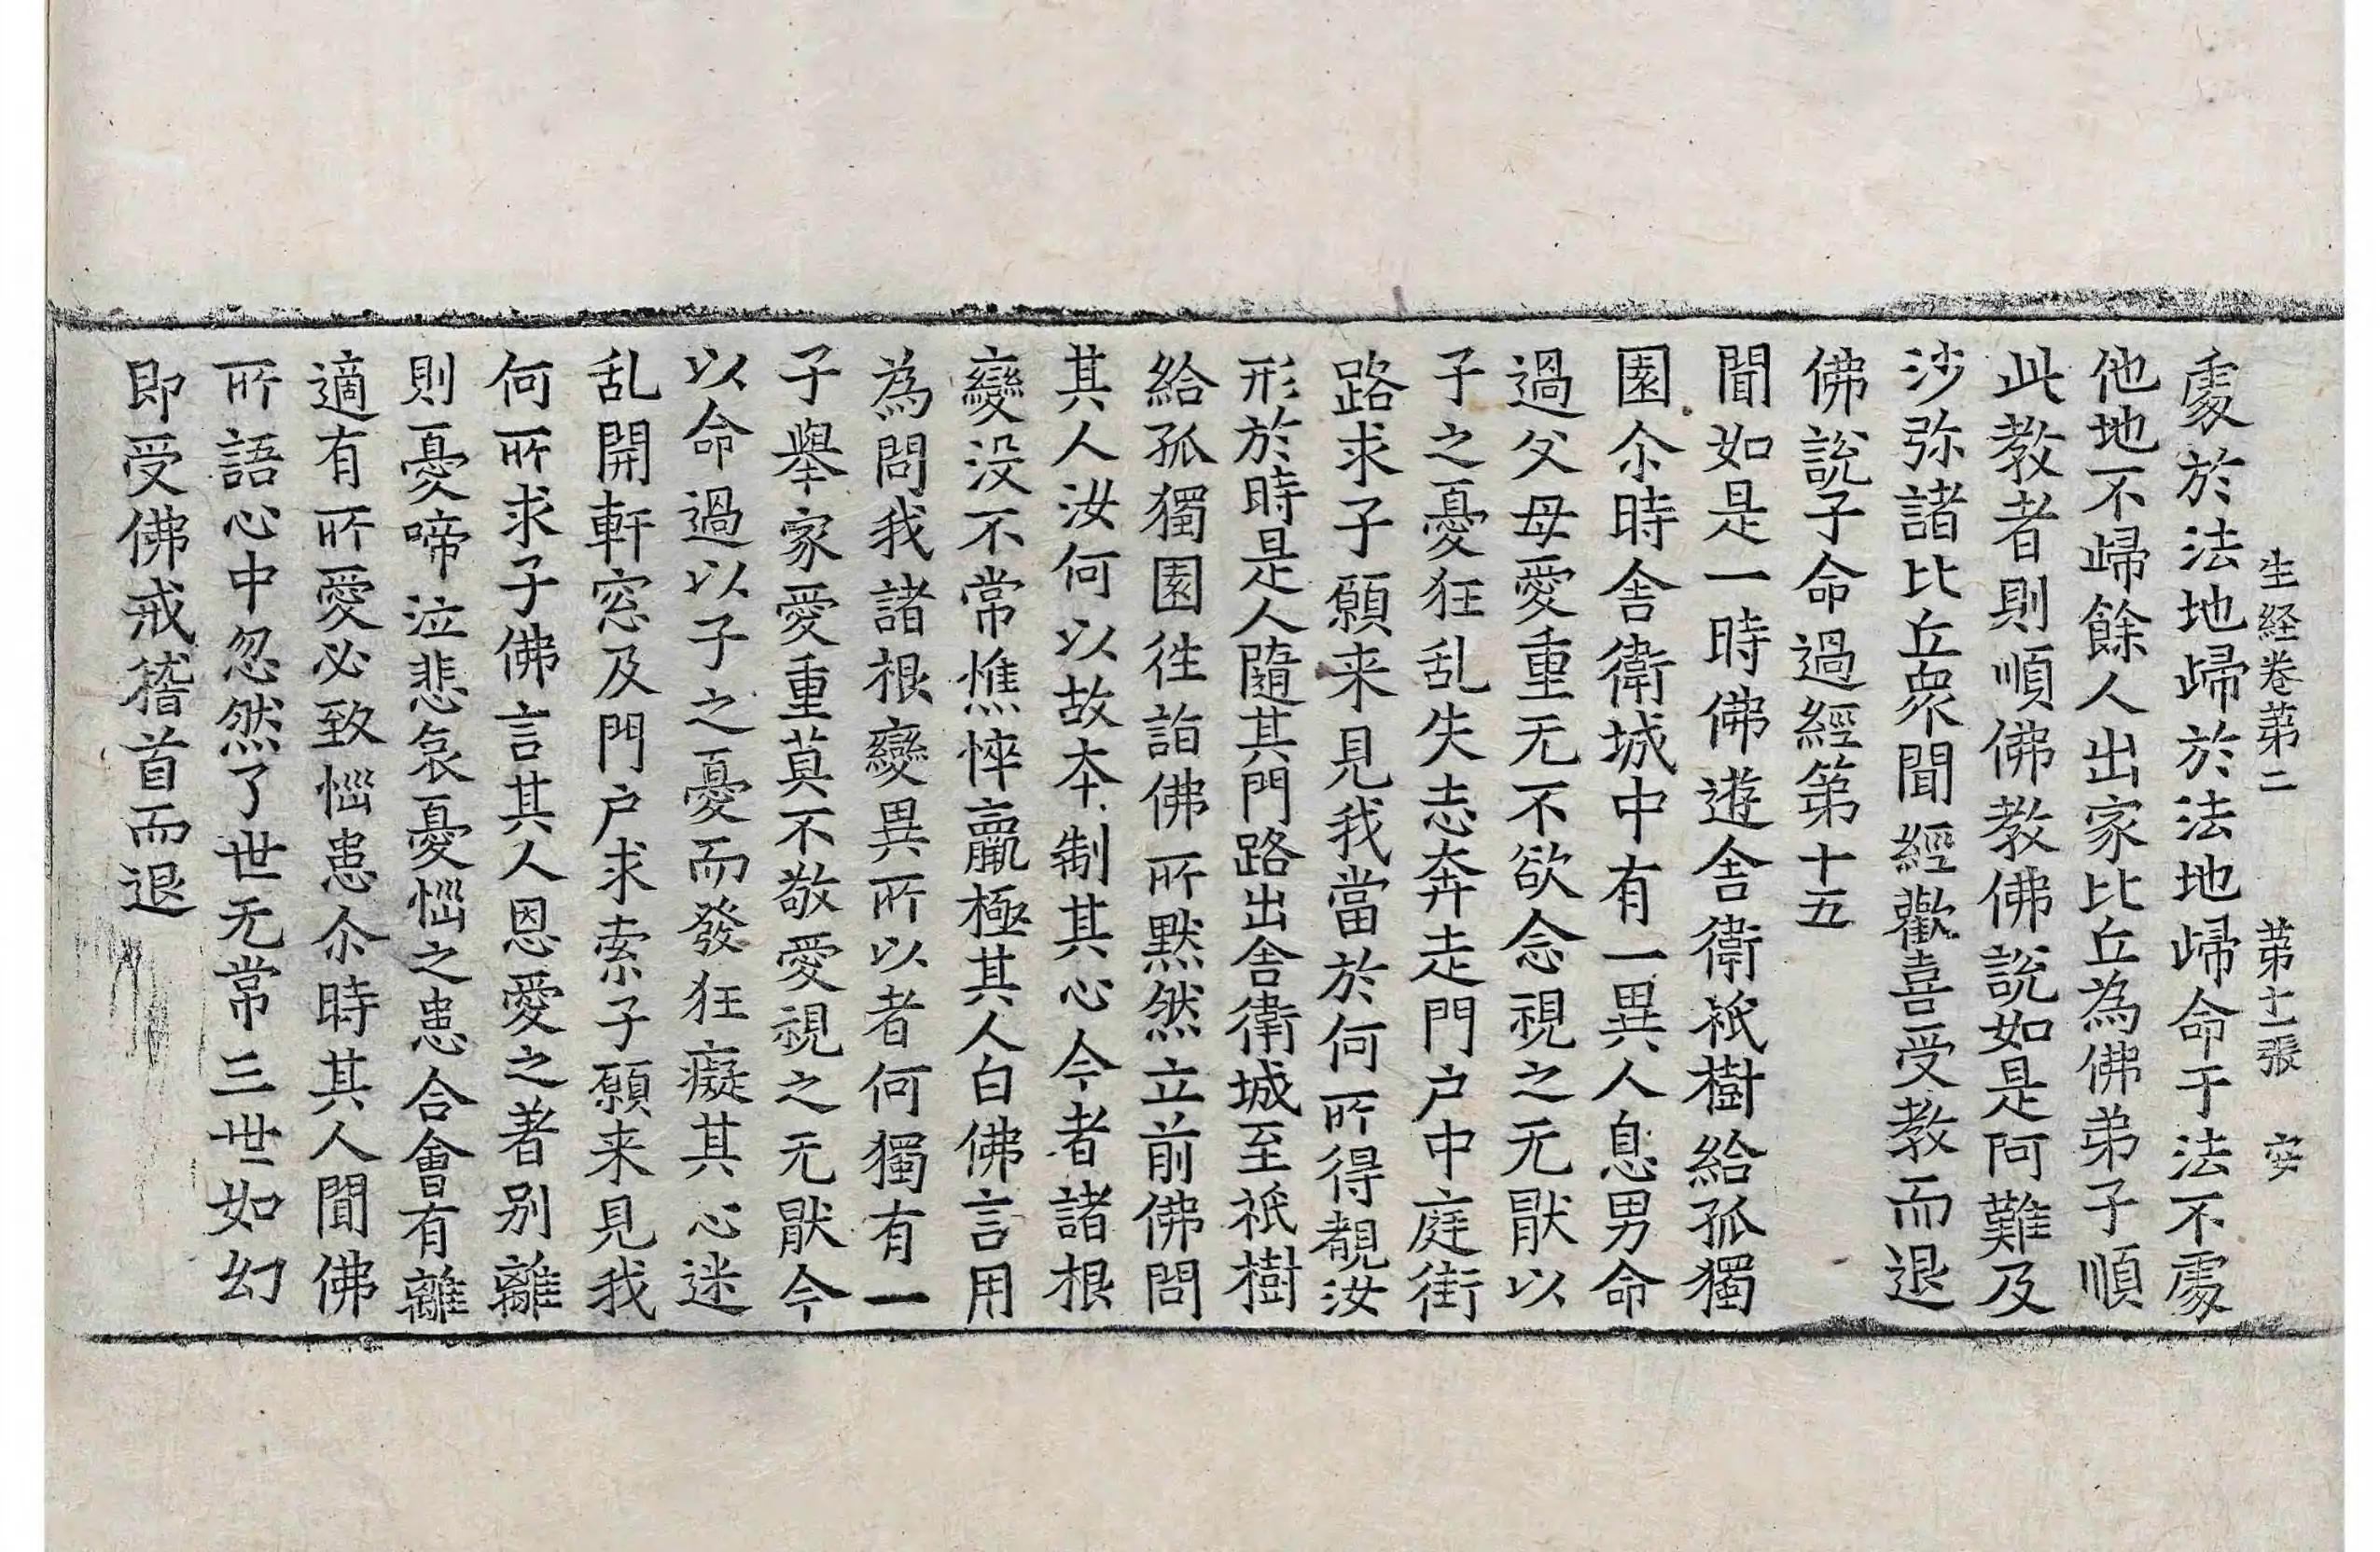 生経卷苐二　苐十一張　安
處於法地歸於法地歸命于法不處
他地不歸餘人出家比丘為佛弟子順
此教者則順佛教佛說如是阿難及
沙弥諸比丘衆聞經歡喜受教而退
佛說子命過經第十五
聞如是一時佛遊舍衛祇樹給孤獨
園尒時舍衛城中有一異人息男命
過父母愛重无不欲念視之无猒以
子之憂狂乱失志奔走門户中庭街
路求子願来見我當於何所得覩汝
形於時是人隨其門路出舍衛城至祇樹
給孤獨園徃詣佛所黙然立前佛問
其人汝何以故本制其心今者諸根
變没不常憔悴羸極其人白佛言用
為問我諸根變異所以者何獨有一
子舉家愛重莫不敬愛視之无猒今
以命過以子之憂而發狂癡其心迷
乱開軒窓及門户求索子願来見我
何所求子佛言其人恩愛之著别離
則憂啼泣悲哀憂惱之患合會有離
適有所愛必致惱患尒時其人聞佛
所語心中忽然了世无常三世如幻
即受佛戒稽首而退